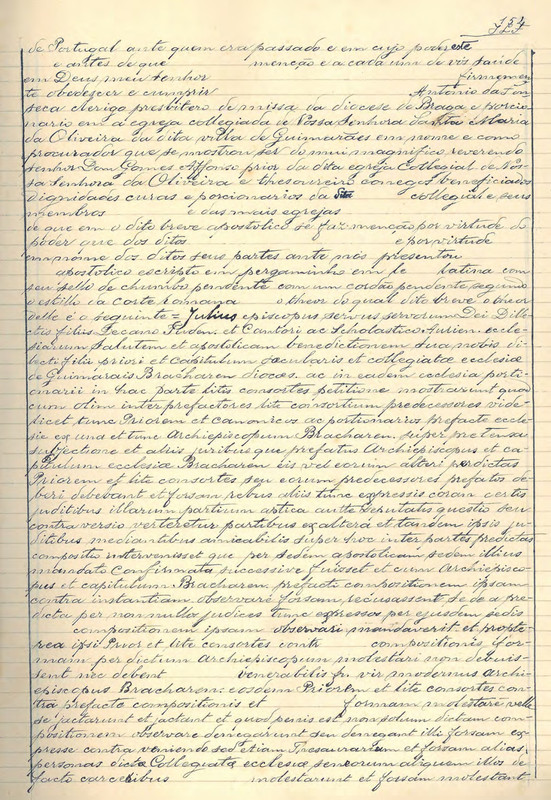 de Portugal ante quem era passado e em cujo poder este
e antes de que menção e a cada um de vós saude
em Deus, meu Senhor firmemen
te obedescer e cumprir Antonio da Fon
seca clerigo presbitero de missa da diocese de Braga e porcio
nario em a egreja collegiada de Nossa Senhora Santa Maria
da Oliveira da dita villa de Guimarães em nome e como
procurador que se mostrou ser do mui magnifico reverendo
senhor Dom Gomes Affonso prior da dita egreja Collegial de Nos
sa Senhora da Oliveira e thesoureiro conegos beneficiados
dignidades curas e porcionarios da dita collegial e seus
membros e das mais egrejas
de que em o dito breve apostolico se faz menção por virtude do
poder que dos ditos e por virtude
em nome dos ditos seus partes ante nós presentou
apostolico escripto em pergaminho em le latina com
seu sello de chumbo pendente com um cordão pendente segundo
o estillo da corte Romana o theor do qual dito breve o theor
delle é o seguinte = Julius episcopus servus servorum Dei Dile
ctis filiis Decano Puden. et Cantori ac Scholastico Aurien. eccle
siarum Salutem et apostolicam benedictionem Sua nobis, di
lecti filii priori et capitulum saecularis et collegiatae ecclesiae
de Guimarais Bracharen dioces. ac in eadem ecclesia porti
onarii in hac parte litis consortes petitione mostrarunt quod
cum olim inter prefactores lite consortium predecessores vide
licet tunc Priorem et canonicos ac portionarios prefacte eccle
sie ex una et tunc Archiepiscopum Bracharen, super pretensa
subjectione et aliis juribus que prefatus Archiepiscopus et ca
pitulum ecclesia Bracharen eis vel eorum alteri predictas
Priorem et lite consortes seu eorum predecessores prefatos de
beri debebant et forsam rebus aliis tunc expressis coram certis
juditibus illarum partium deputatis questio seu
controversio verteretur partibus ex altera et tandem ipsis ju
ditibus mediantibus amicabilis super hoc inter partes predictas
compositio intervenisset que per sedem apostolicam sedem illius
mandato Confirmata successive fuisset et cum Archiepisco
pus et capitulum Bracharen, prefacto compositionem ipsam
contra instantiam observare forsam, recusassent, sede a pre
dicta per nonnullos judices tunc expressos per ejusdem sedis
compositionem ipsam observari mandaverit et propte
rea ipsi Prior et lite consortes contra compositionis for
mam per dictum archiepiscopum molestari non debuis
sent nec debent venerabilis fr. vir modernus Archi
episcopus Bracharen: eosdem Priorem et lite consortes con
tra prefacto compositionis et formam molestare velle
se jactarunt et jactant et quod penis est non solum dictam com
positionem observare denegarunt seu denegant illi forsam ex
presse contra veniendo sed etiam Thesaurarium et forsam alias
personas dicta Collegiata ecclesiæ seu eorum aliquem illos de
facto carceribus molestarunt et forsam molestant